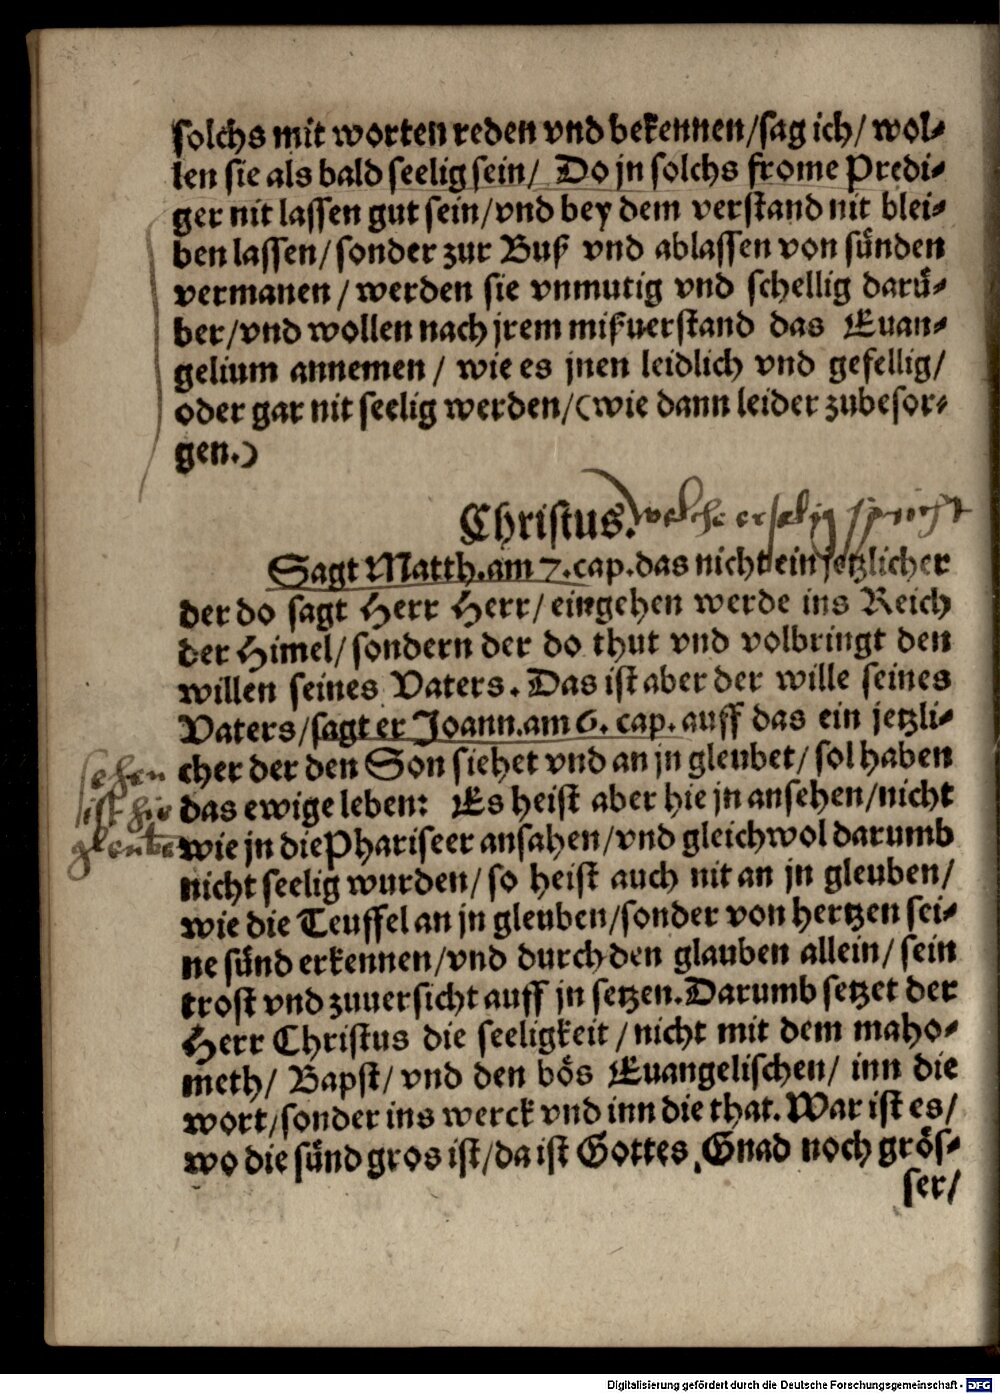 solchs mit worten reden vnd bekennen/sag ich/ wol⸗
len sie als bald seelig sein/ Do jn solchs frome Predi⸗
ger nit lassen gut sein/vnd bey dem verstand nit blei⸗
ben lassen/sonder zur Buß vnd ablassen von sünden
vermanen/werden sie vnmutig vnd schellig darü⸗
ber/vnd wollen nach jrem mißuerstand das Euan⸗
gelium annemen/ wie es jnen leidlich vnd gefellig/
oder gar nit seelig werden/(wie dann leider zubesor⸗
gen.)
Christus. welche er selig spricht
Sagt Matth.am 7.cap.das nicht ein jetzlicher
der do sagt Herr Herr/eingehen werde ins Reich
der Himel/sondern der do thut vnd volbringt den
willen seines Vaters. Das ist aber der wille seines
Vaters/sagt er Joann.am 6. cap. auff das ein jetzli⸗
cher der den Son siehet vnd an jn gleubet/ sol haben
sehen
das ewige leben: Es heist aber hie jn ansehen/nicht
ist hie
wie jn die Phariseer ansahen/vnd gleichwol darumb
nicht seelig wurden/so heist auch nit an jn gleuben/
wie die Teuffel an jn gleuben/sonder von hertzen sei⸗
ne sünd erkennen/vnd durch den glauben allein/sein
trost vnd zuuersicht auff jn setzen.Darumb setzet der
Herr Christus die seeligkeit/nicht mit dem maho⸗
meth/ Bapst/vnd den bös Euangelischen/ inn die
wort/sonder ins werck vnd inn die that. War ist es/
wo die sünd gros ist/da ist Gottes Gnad noch grös⸗
ser/
Digitalisierung gefördert durch die Deutsche Forschungsgemeinschaft - DFG